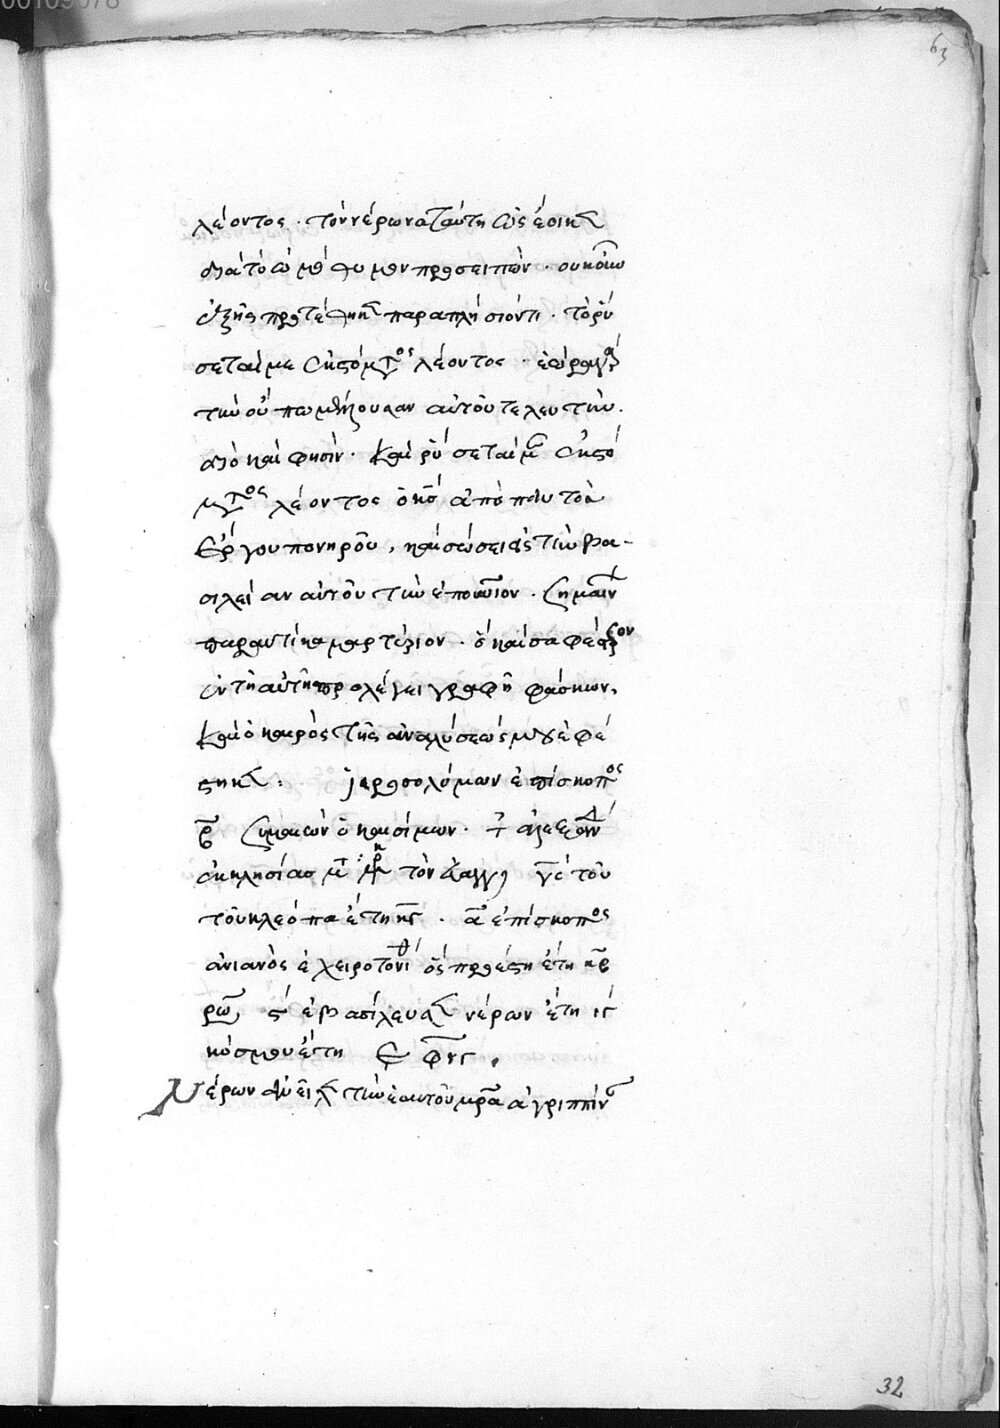 00109078
63
λέοντος · τὸν νέρωνα ταύτη ὡς ἔοικε
διὰ τὸ ὠμόθυμον προσειπών · οὐκοῦν
ἑξῆς προστέθηκε παραπλήσιόν τι · τὸ ῥύ
σεταί με ἐκ στόματος λέοντος · ἑώρα γὰρ
τὴν οὔπω μέλλουσαν αὐτοῦ τελευτήν.
διὸ καί φησιν · καὶ ῥύσεταί με ἐκ στό
ματος λέοντος ὁ κς ἀπὸ παντὸς
ἔργου πονηροῦ, καὶ σώσει εἰς τὴν βα-
σιλείαν αὐτοῦ τὴν ἐπουράνιον · σημαίνων
παραυτίκα μαρτύριον · ὃ καὶ σαφέστερον
ἐν τῇ αὐτῇ προλέγει γραφῇ φάσκων,
καὶ ὁ καιρὸς τῆς ἀναλύσεώς μου ἐφέ
στηκε: ἱεροσολύμων ἐπίσκοπος
β συμεὼν ὁ καὶ σίμων · τῆς ἀλεξανδρέων
ἐκκλησίας μετὰ τὸν
τοῦ κλεόπα ἔτη · α ἐπίσκοπος
ἀνιανὸς ἐχειροτονήθη ὃς προέστη ἔτη κβ
ῥωμαίων ϛ ἐβασίλευσε νέρων ἔτη ιϛ
κόσμου ἔτη ε φνϛ.
Νέρων ἀνεῖλε τὴν ἑαυτοῦ μρα ἀγριππίναν
32